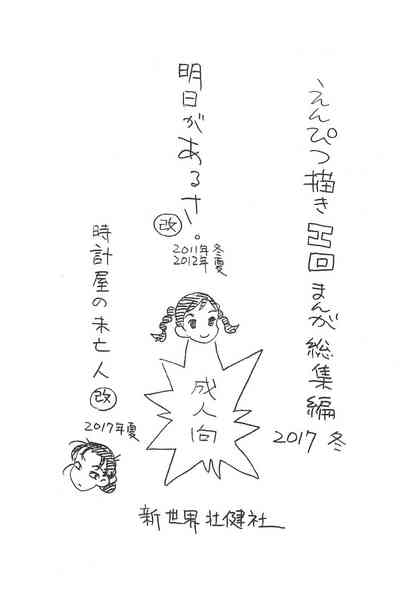 えんぴつ描きエロまんが総集編
2017 冬
明日があるさ。
改
2011年冬
2012年夏
時計屋の未亡人
改
2017年夏
成人向
新世界壮健社